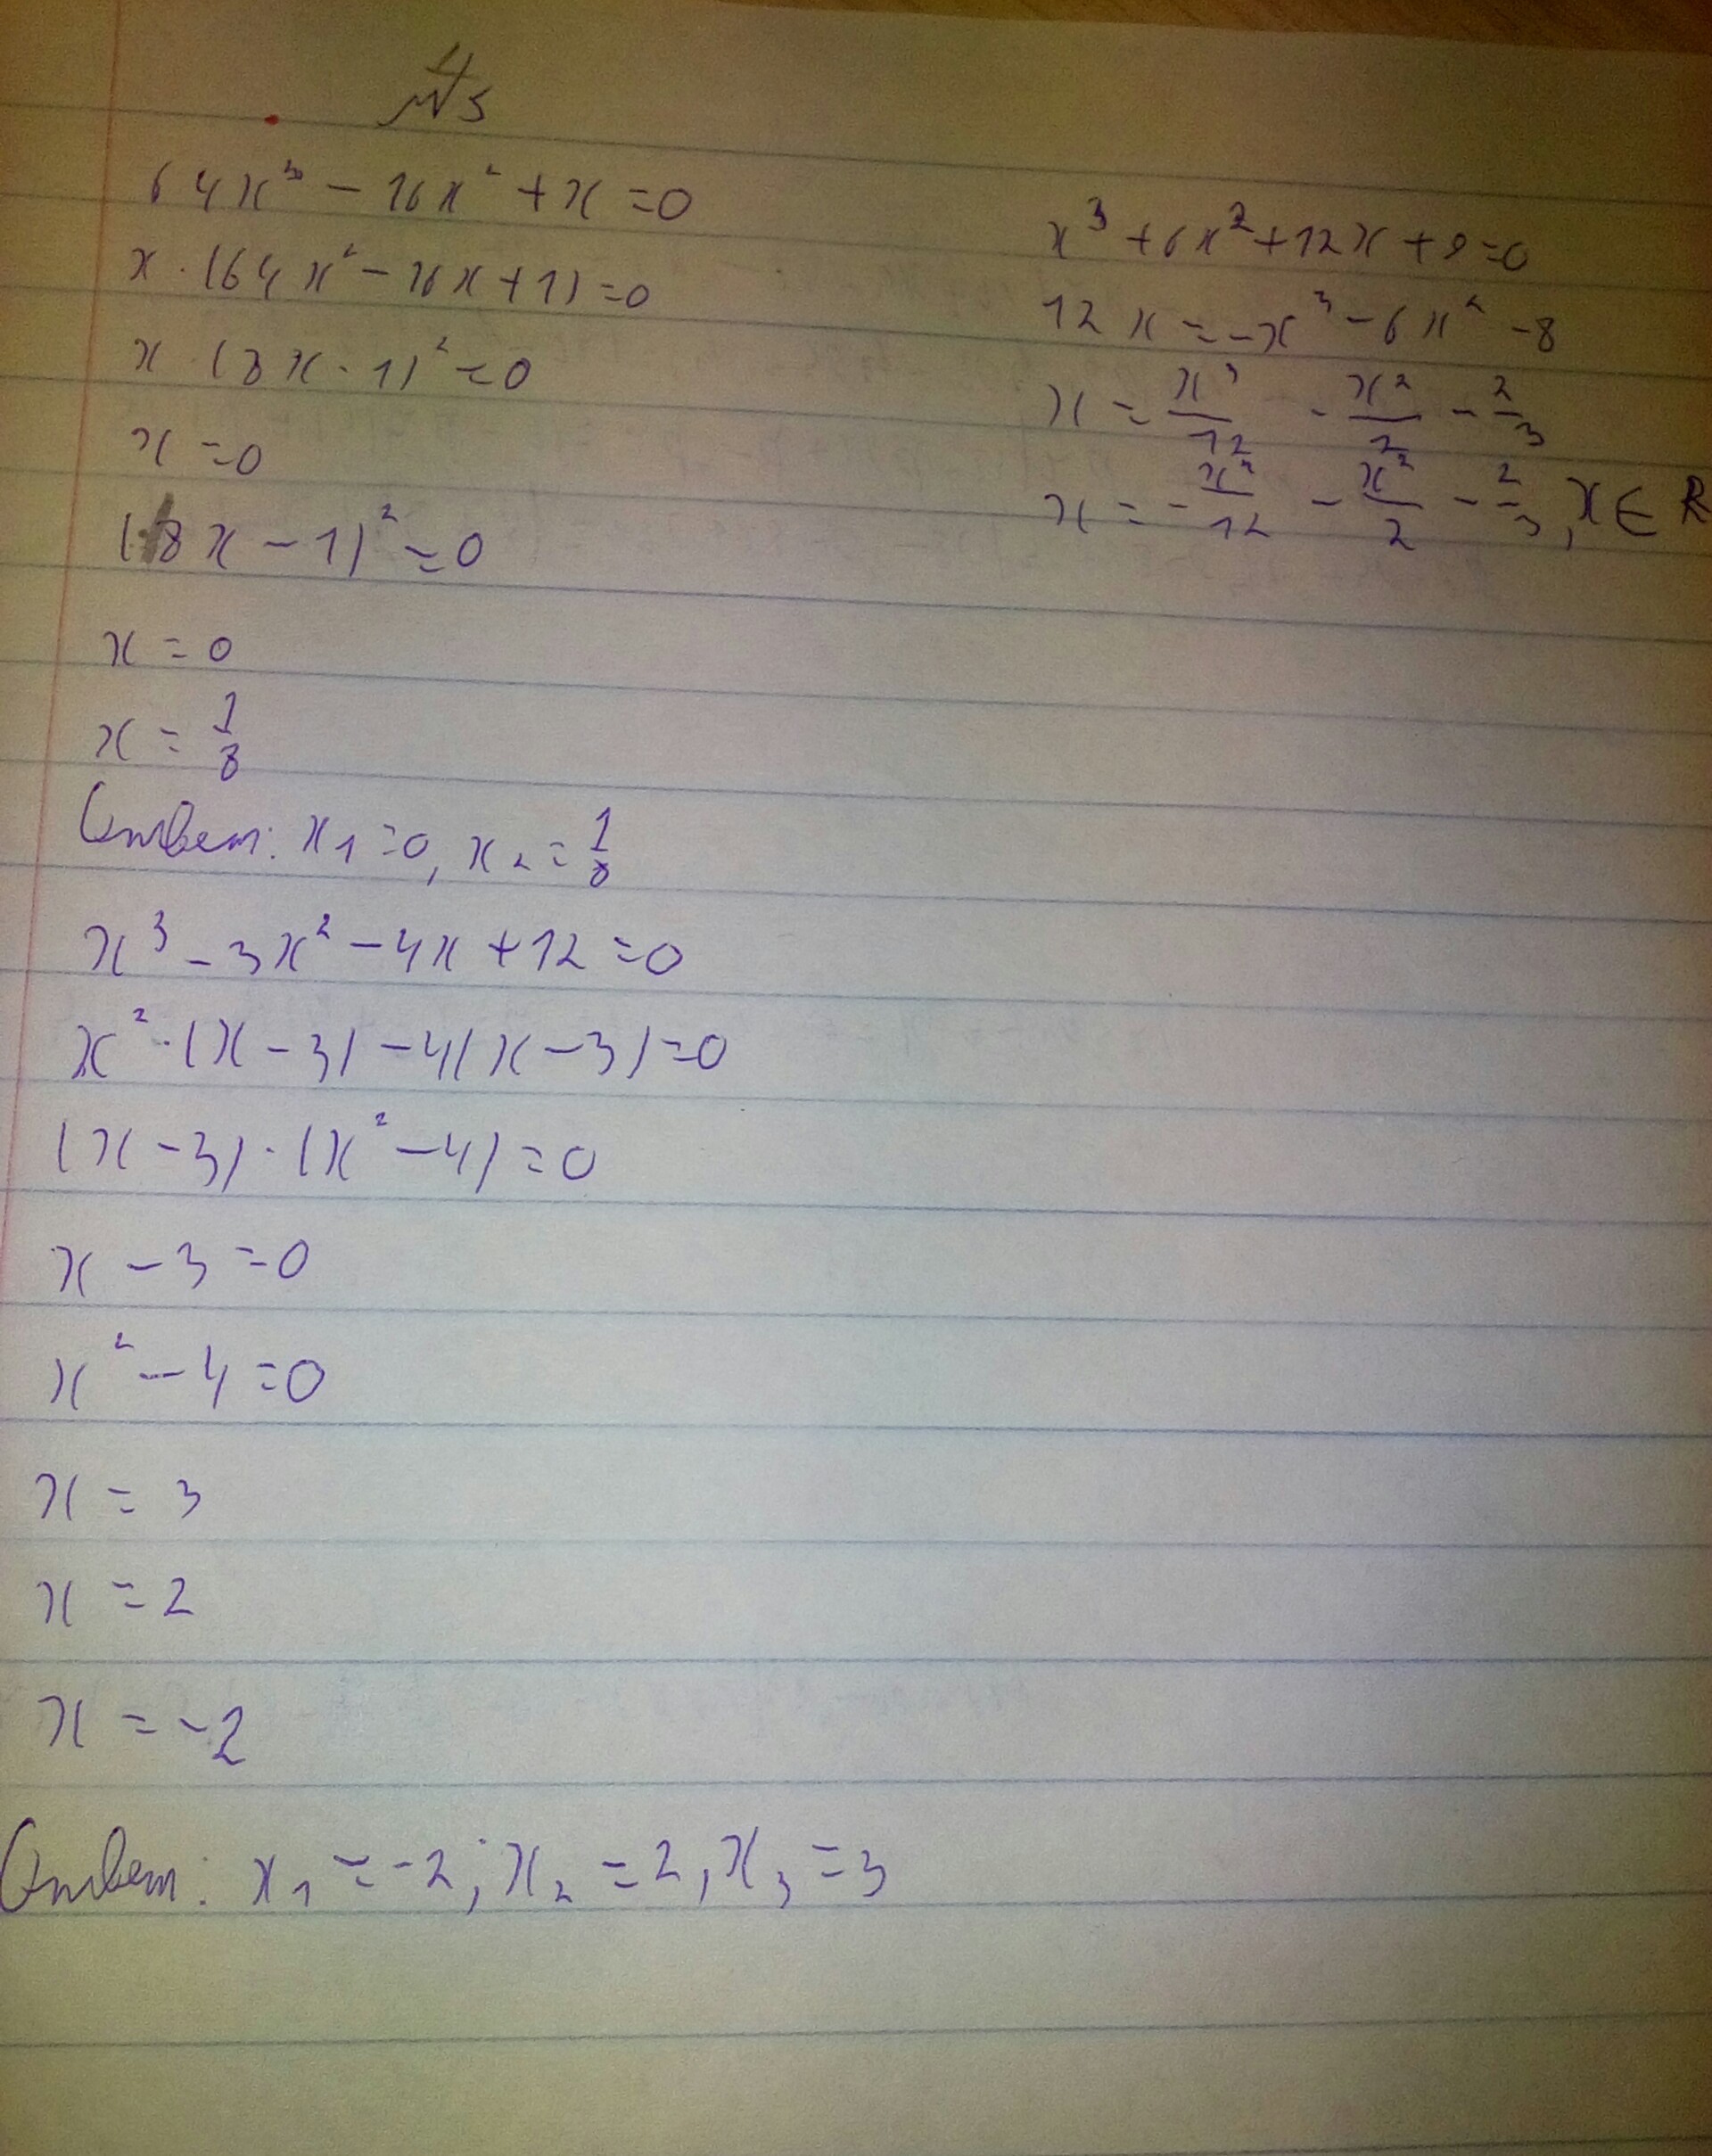 №5
64x³ - 16x² + x = 0
x · (64x² - 16x + 1) = 0
x · (8x - 1)² = 0
x = 0
(8x - 1)² = 0
x = 0
x = 1/8
Ответ: x₁ = 0, x₂ = 1/8
x³ - 3x² - 4x + 12 = 0
x² · (x - 3) - 4(x - 3) = 0
(x - 3) · (x² - 4) = 0
x - 3 = 0
x² - 4 = 0
x = 3
x = 2
x = -2
Ответ: x₁ = -2; x₂ = 2, x₃ = 3
x³ + 6x² + 12x + 8 = 0
12x = -x³ - 6x² - 8
x = x³/12 - x²/2 - 2/3
x = - x³/12 - x²/2 - 2/3, x ∈ R